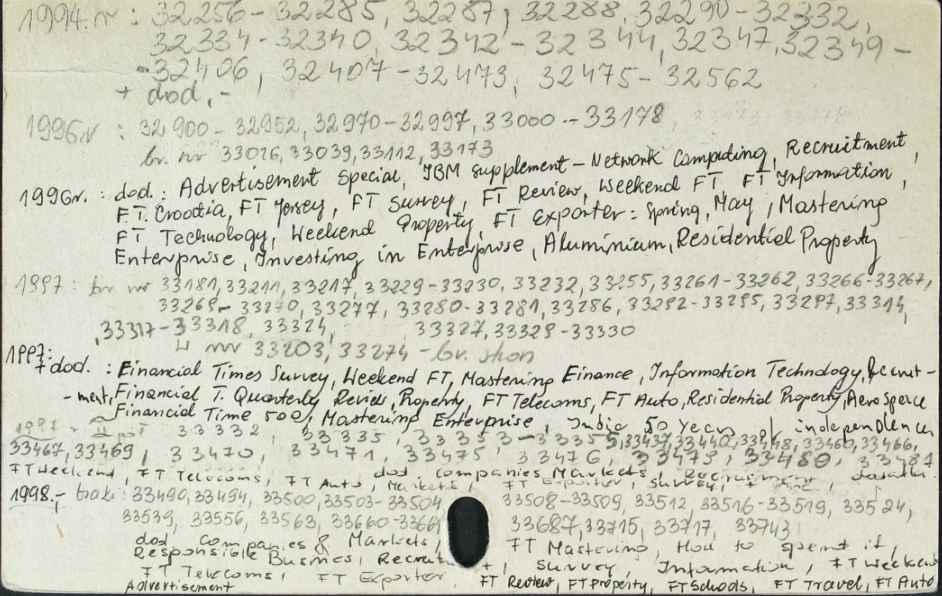 1994.r : 32256-32285, 32287, 32288, 32290-32332,
32334-32340, 32342-32344, 32347, 32349-
-32406, 32407-32473, 32475-32562
+ dod.-
1996.r : 32900-32952, 32970-32997, 33000-33178
br. nr 33026, 33039, 33112, 33173
1996r. : dod.: Advertisement Special, IBM supplement - Network Computing, Recruitment,
FT. Croatia, FT Jersey, FT Survey, FT Review, Weekend FT, FT Information,
FT Technology, Weekend Property, FT Exporter: Spring, May, Mastering
Enterprise, Investing in Enterprise, Aluminium, Residential Property
1997: br nr 33181, 33211, 33217, 33229-33230, 33232, 33255, 33261-33262, 33266-33267,
33269-33270, 33277, 33280-33281, 33286, 33292-33295, 33297, 33314,
33317-33318, 33324, 33327, 33329-33330
nr 33203, 33274 - br. stron
1997:
+ dod. : Financial Times Survey, Weekend FT, Mastering Finance, Information Technology, Recruit-
-ment, Financial T. Quarterly Review, Property, FT Telecoms, FT Auto, Residential Property, Aerospace
Financial Time 500, Mastering Enterprise, India 50 years of independence
1997 33332, 33335, 33437, 33440, 33448, 33460, 33466,
33467, 33469, 33470, 33471, 33475, 33476, 33479, 33480, 33487
FT Weekend, FT Telecoms, FT Auto, dod Companies Markets, FT Exporter, Survey, Recruitment
1998.- brak: 33490, 33494, 33500, 33503-33504 33508-33509, 33512, 33516-33519, 33524,
33539, 33556, 33563, 33660-33661 33687, 33715, 33717, 33743
dod Companies & Markets, FT Mastering, How to spend it,
Responsible Busines, Survey, Information, FT Weekend
FT Telecoms, FT Exporter FT Review, FT Property, FT Schools, FT Travel, FT Auto
Advertisement